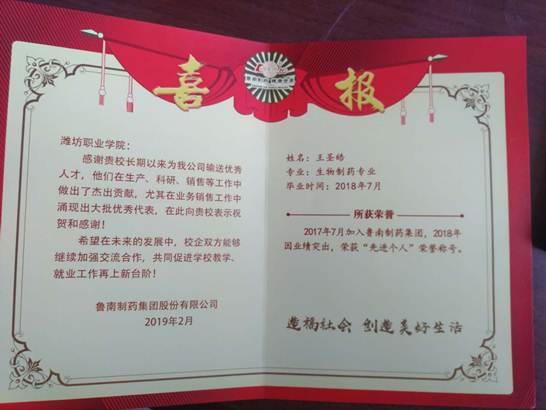 喜报
潍坊职业学院：
感谢贵校长期以来为我公司输送优秀
人才，他们在生产、科研、销售等工作中
做出了杰出贡献，尤其在业务销售工作中
涌现出大批优秀代表，在此向贵校表示祝
贺和感谢！
希望在未来的发展中，校企双方能够
继续加强交流合作，共同促进学校教学、
就业工作再上新台阶！
鲁南制药集团股份有限公司
2019年2月
姓名：王圣皓
专业：生物制药专业
毕业时间：2018年7月
所获荣誉
2017年7月加入鲁南制药集团，2018年
因业绩突出，荣获“先进个人”荣誉称号。
造福社会 创造美好生活